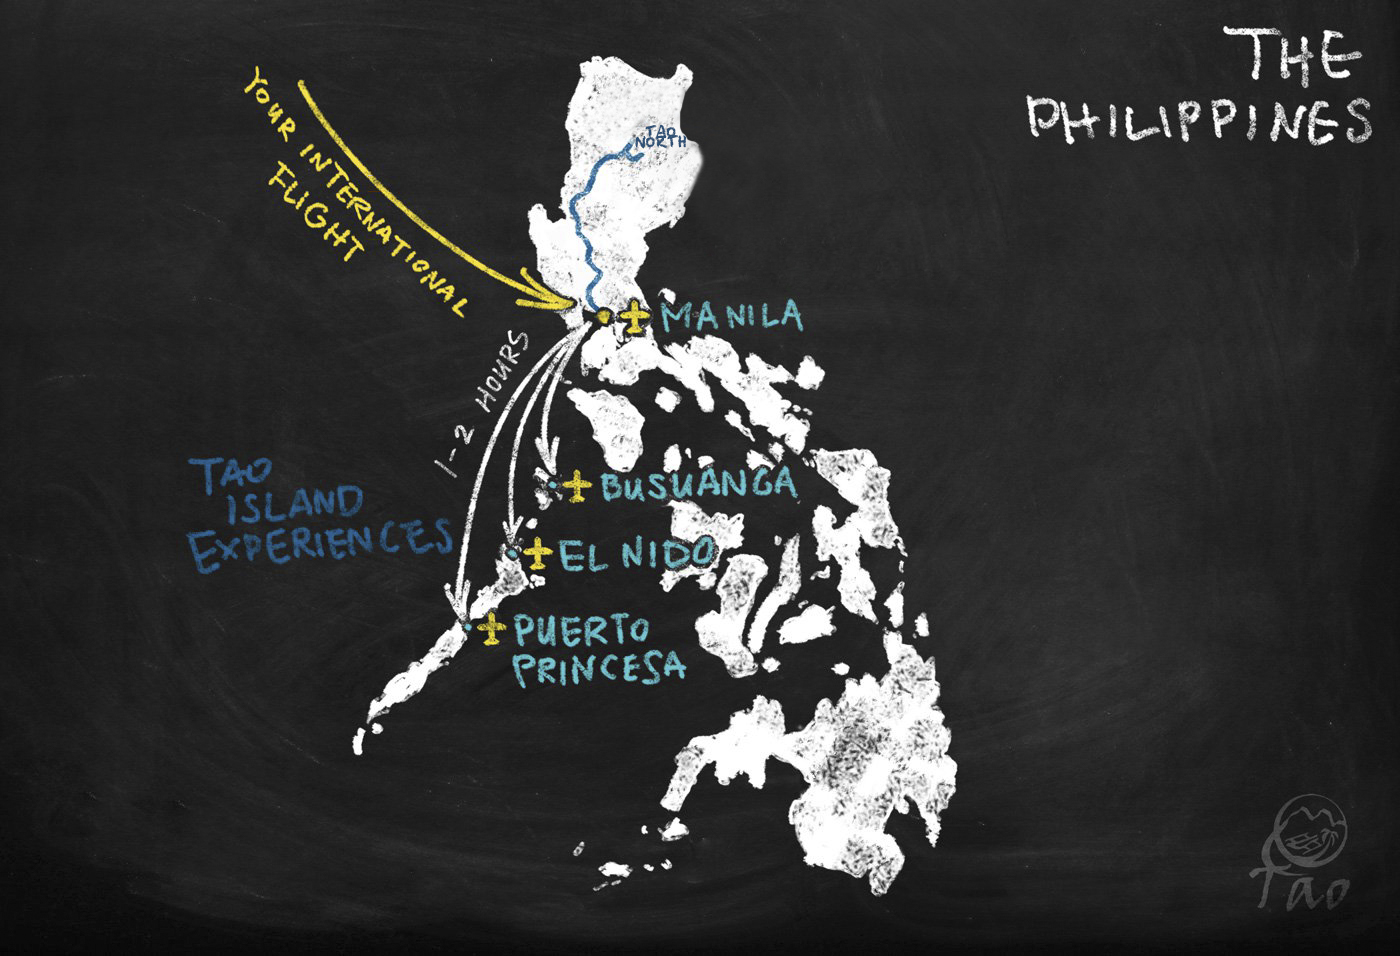 THE
PHILIPPINES
YOUR INTERNATIONAL
FLIGHT
TAO
NORTH
MANILA
1-2 HOURS
TAO
ISLAND
EXPERIENCES
BUSUANGA
EL NIDO
PUERTO
PRINCESA
Tao